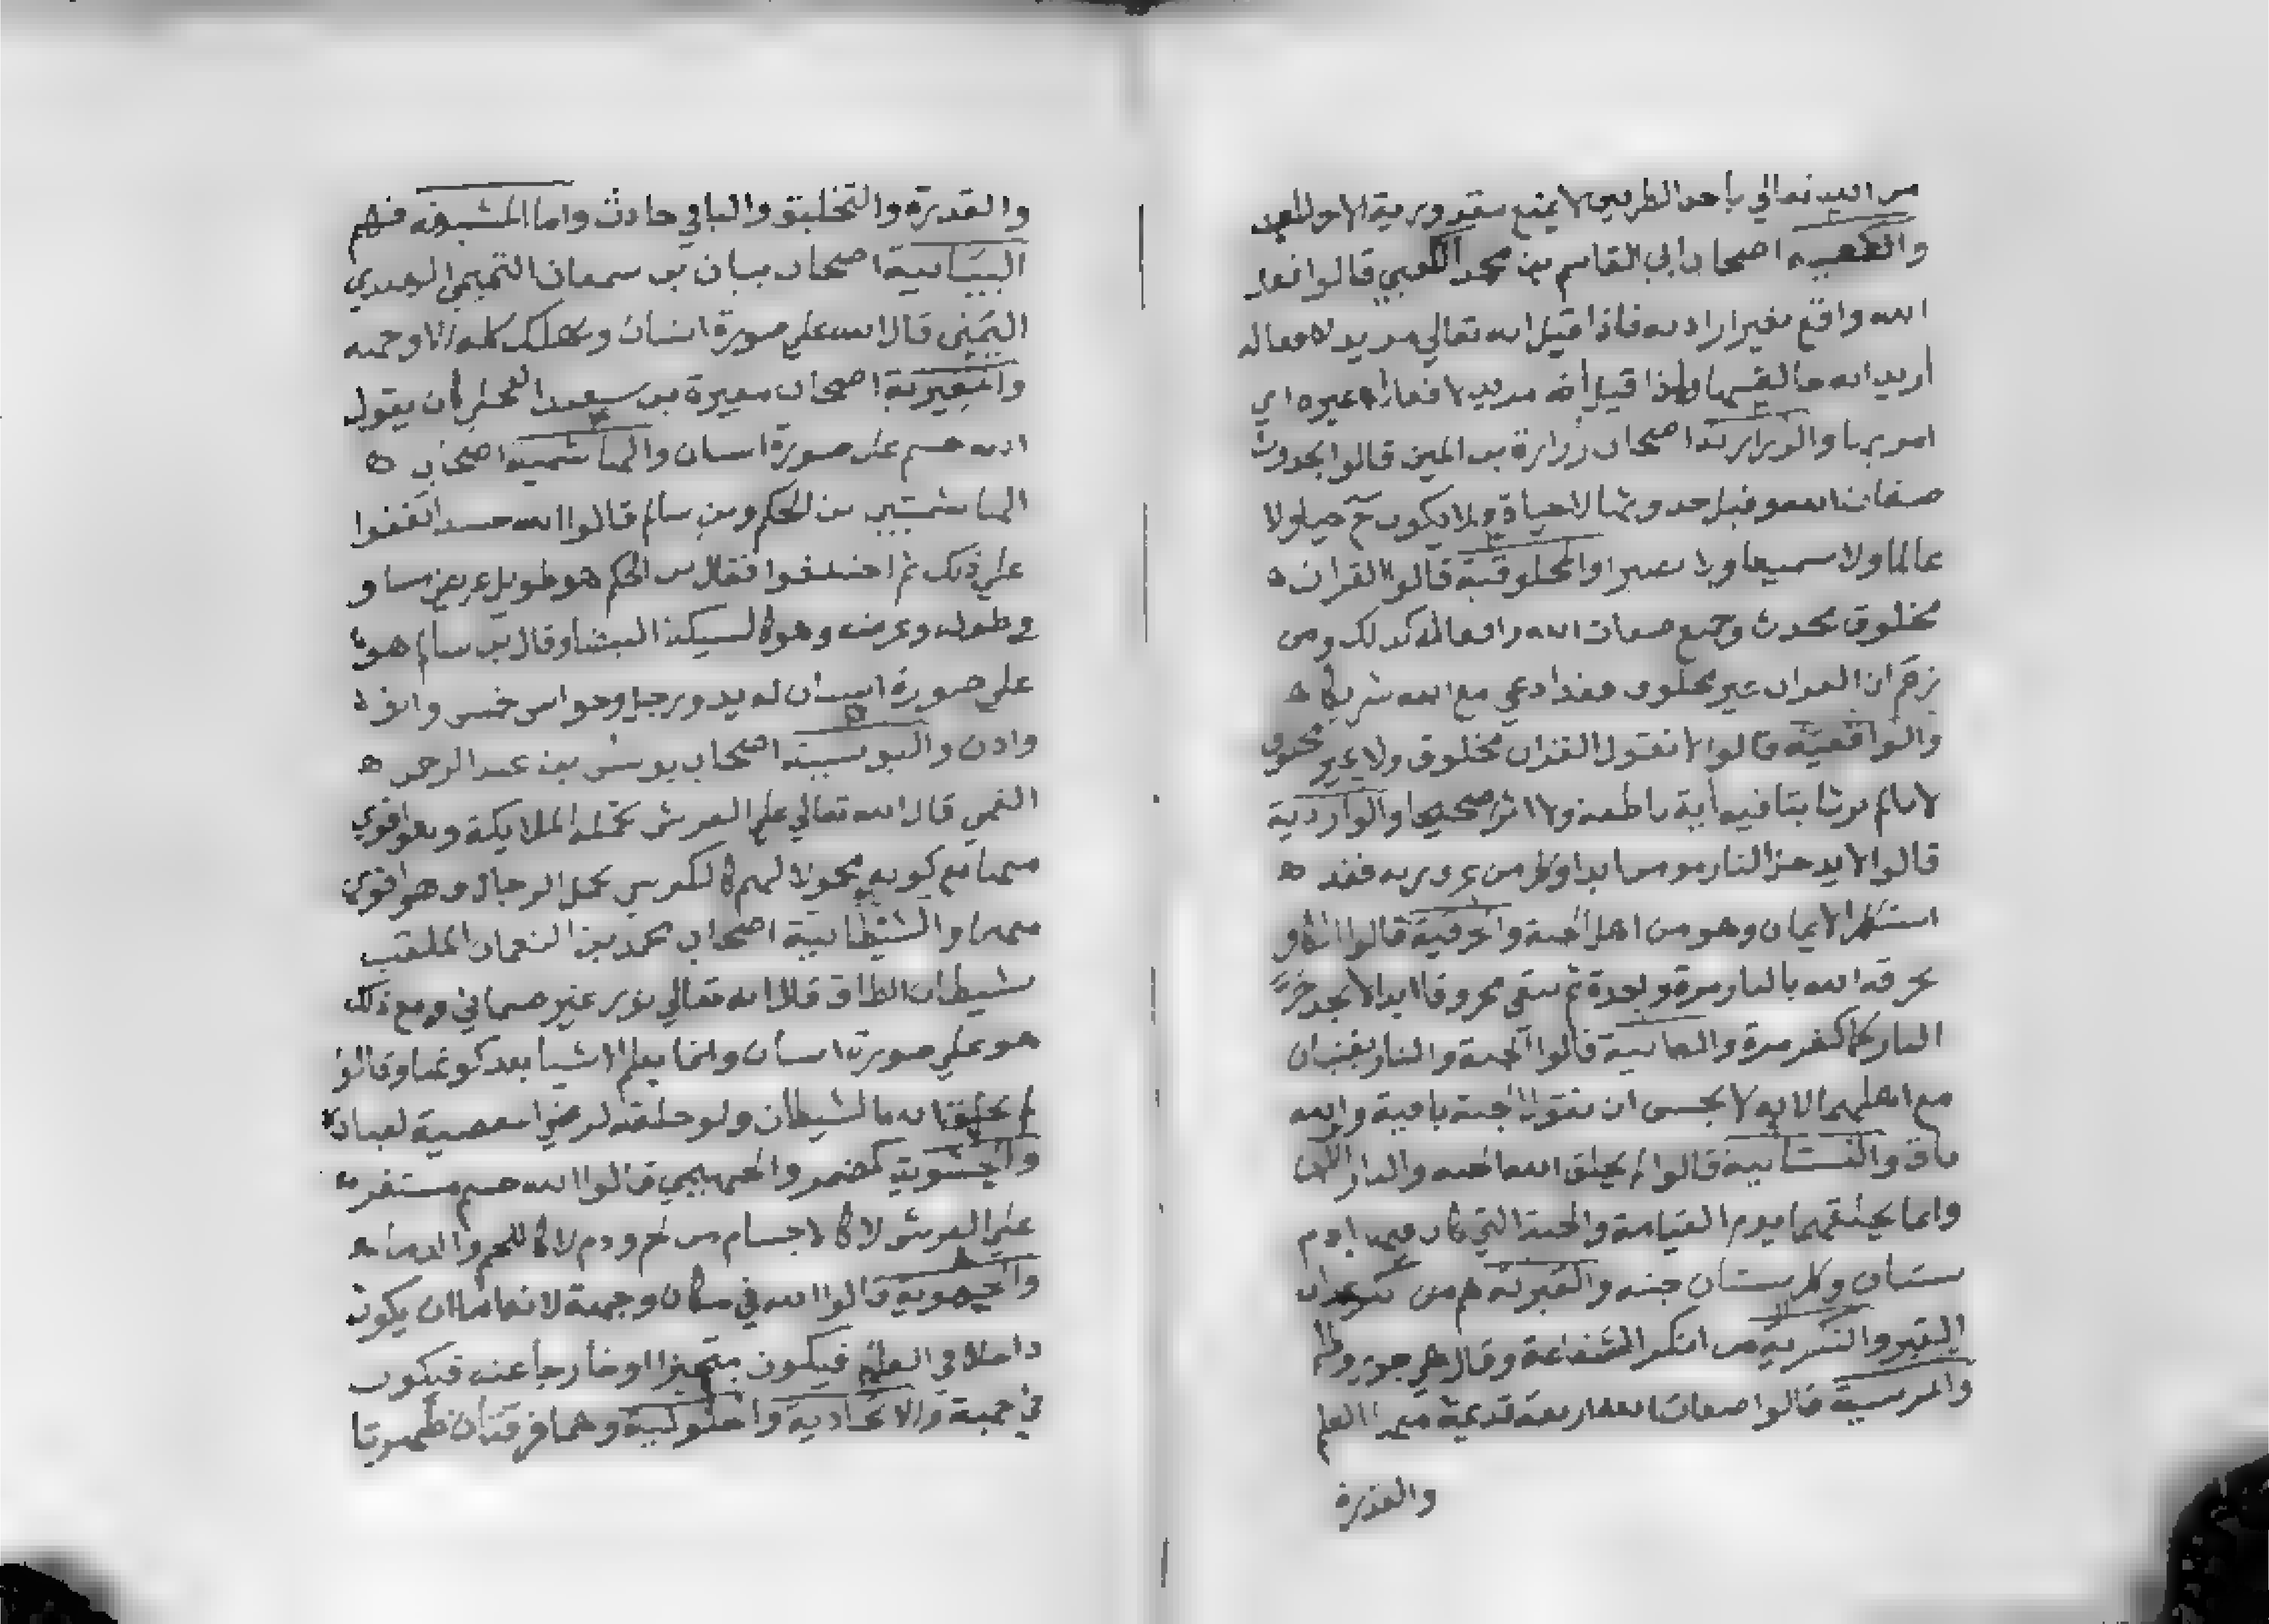 من الله تعالي بأحد الطريقين لا يمتنع مقدورية الاخر للعبد
والكعبيه اصحاب أبي القاسم بن محمد الكعبي قالوا فعل
الله واقع بغير ارادته فاذا قيل انه تعالي مريد لافعاله
أريد انه خالقها واذا قيل أنه مريد لافعال غيره اي
امر بها والزرارية اصحاب زرارة بن اعين قالوا بحدوث
صفات الله وقبل حدوثها لا حياة ولا يكون ح حيا ولا
عالما ولا سميعا ولا بصيرا والمخلوقية قالوا القران
مخلوق محدث وجميع صفات الله وافعاله كذلك ومن
زعم ان القران غير مخلوق فقد ادعي مع الله شريكا
والواقفية قالوا لا نقول القران مخلوق ولا غير مخلوق
لانا لم نر شيا فيه أية قاطعة ولا اثرا صحيحا والواردية
قالوا لا يدخل النار مومن ابدا وكل من ورده فقد
استكمل الايمان وهو من اهل الجنة والحرقية قالوا الكافر
يحرقه الله بالنار مرة واحدة ثم يبقي محروقا ابدا لا يجد حر
النار كما كفر مرة والفانية قالوا الجنة والنار يفنيان
مع اهلهما لانه لا يحسن ان نقول الجنة باقية والله
باق والنسانية قالوا لم يخلق الله الجنه والنار الان
وانما يخلقهما يوم القيامة والجنة التي كان فيها ادم
بستان وكل بستان جنه والقبرية هم من ينكر عذاب
القبر والنكرية من انكر الشفاعة وقال هي جور وظلم
والمريسية قالوا صفات الله اربعة قديمة منها العلم
والقدرة
والقدرة والتخليق والباقي حادث واما المشبهه فهم
البيانية اصحاب بيان بن سمعان التميمي الهندي
اليمني قال الله علي صورة انسان ويهلك كله الا وجهه
والمغيرية اصحاب مغيرة بن سعيد العجلي كان يقول
الله جسم على صورة انسان والهاشمية اصحاب
الهاشمين بن الحكم وبن سالم قالوا الله جسد اتفقوا
علي ذلك ثم اختلفوا فقال بن الحكم هو طويل عريض مساو
طوله وعرضه وهو كالسبيكة البيضا وقال بن سالم هو
علي صورة انسان له يد ورجل وحواس خمس وانف
واذن واليونسية اصحاب يونس بن عبد الرحمن
القمي قال الله تعالي علي العرش تحمله الملايكة وهو اقوي
منها مع كونه محمولا لهم كالكرسي يحمل الرجال وهو اقوي
منها والشيطانية اصحاب محمد بن النعمان الملقب
بشيطان الطاق قال الله تعالي نور غير جسماني ومع ذلك
هو علي صورة انسان وانما يعلم الاشيا بعد كونها وقالوا
لم يخلق الله الشيطان ولو خلقه لرضي معصية لعباده
والحشوية كمضر والهجيمي قالوا الله جسم مستقر
علي العرش لا كالاجسام من لحم ودم لا كاللحم والدما
والجهوية قالوا الله في مكان وجهة لانه اما ان يكون
داخلا في العالم فيكون متحيزا او خارجا عنه فيكون
في جهة والاتحادية والحلولية وهما فرقتان ظهرتا